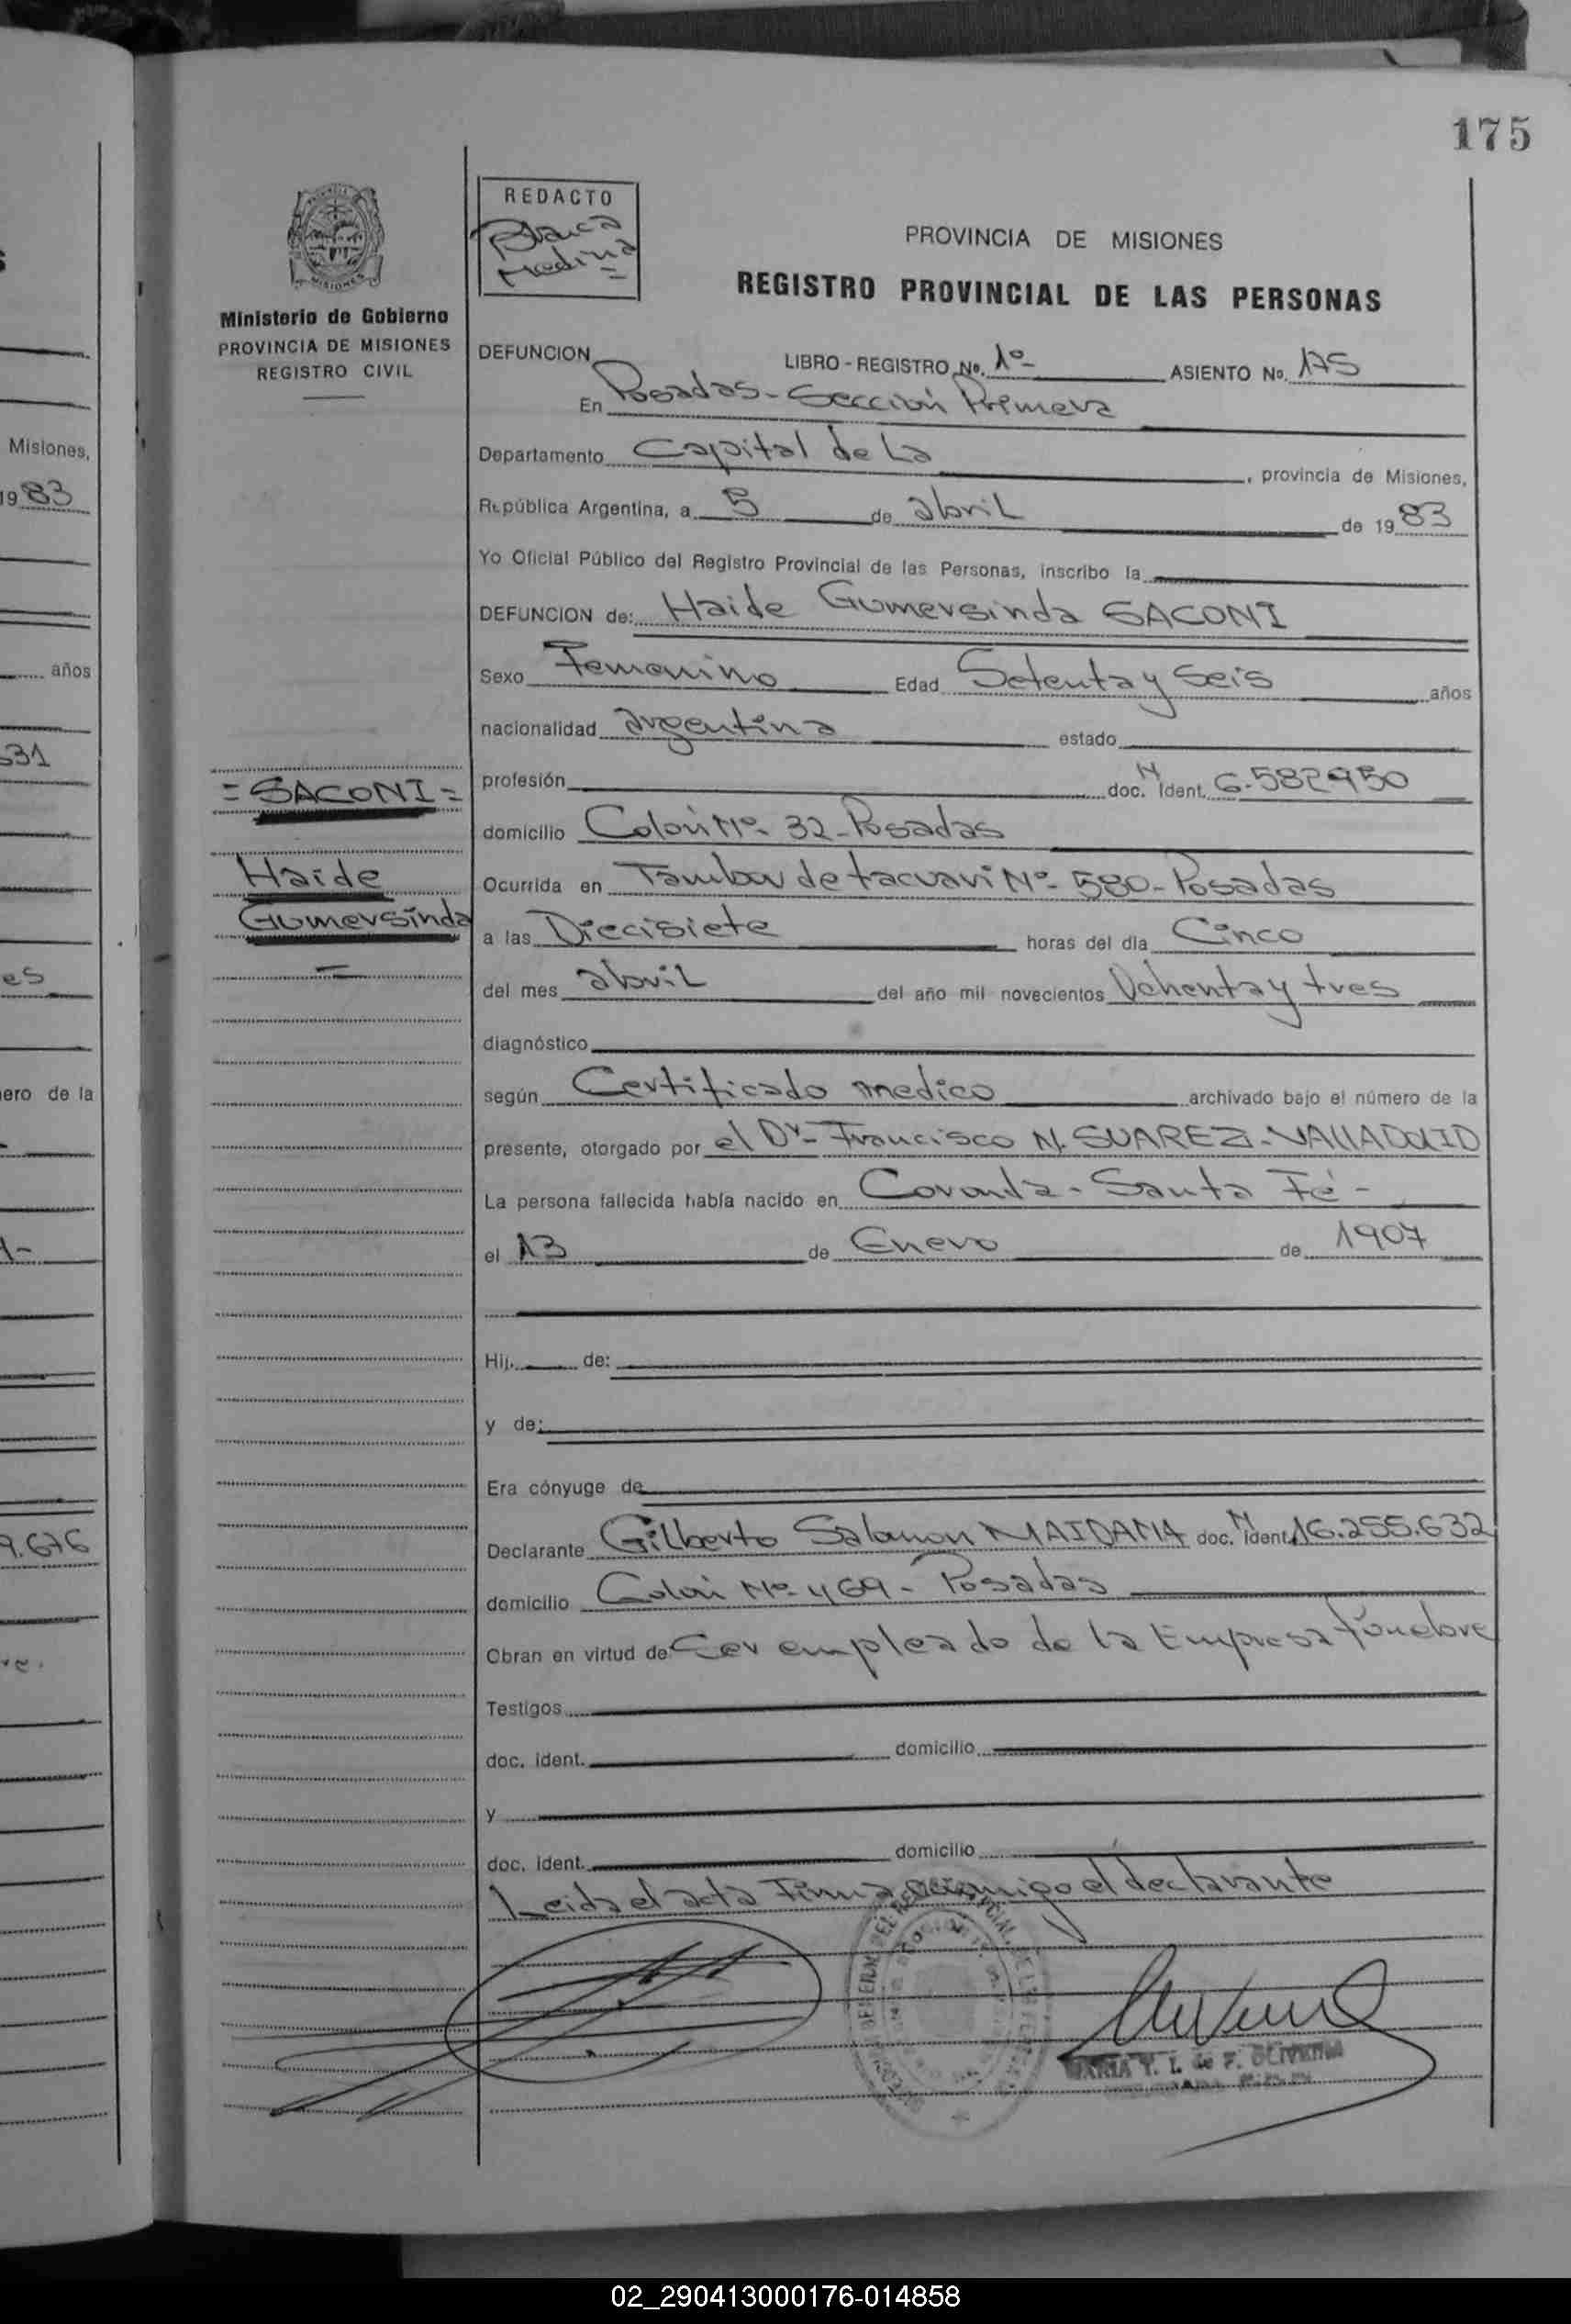 175
REDACTO
Blanca
Medina
PROVINCIA DE MISIONES
REGISTRO PROVINCIAL DE LAS PERSONAS
MISIONES
Ministerio de Gobierno
PROVINCIA DE MISIONES
REGISTRO CIVIL
DEFUNCION LIBRO - REGISTRO No. 1º- ASIENTO No. 175
En Posadas - Sección Primera
Departamento Capital de La , provincia de Misiones,
República Argentina, a 5 de abril de 1983
Yo Oficial Público del Registro Provincial de las Personas, inscribo la
DEFUNCION de: Haide Gumersinda SACONI
Sexo Femenino Edad Setenta y Seis años
nacionalidad argentina estado
profesión doc. N Ident. 6.582950
domicilio Colón Nº- 32 - Posadas
Ocurrida en Tambor de tacuari Nº- 580 - Posadas
a las Diecisiete horas del día Cinco
del mes abril del año mil novecientos Ochenta y tres
diagnóstico
según Certificado medico archivado bajo el número de la
presente, otorgado por el Dr- Francisco N. SUAREZ - VALLADOLID
La persona fallecida había nacido en Coronda - Santa Fé -
el 13 de Enero de 1907
Hij. de:
y de:
Era cónyuge de
Declarante Gilberto Salamon MAIDANA doc. N ident. 16.255.632
domicilio Colón Nº- 469 - Posadas
Obran en virtud de Ser empleado de la Empresa fúnebre
Testigos
doc. ident. domicilio
y
doc. ident. domicilio
Leida el acta Firma conmigo el declarante
MARIA Y. I. de F. OLIVEIRA
= SACONI =
Haide
Gumersinda
=
Misiones,
1983
años
631
es
ero de la
1-
9.676
re.
02_290413000176-014858